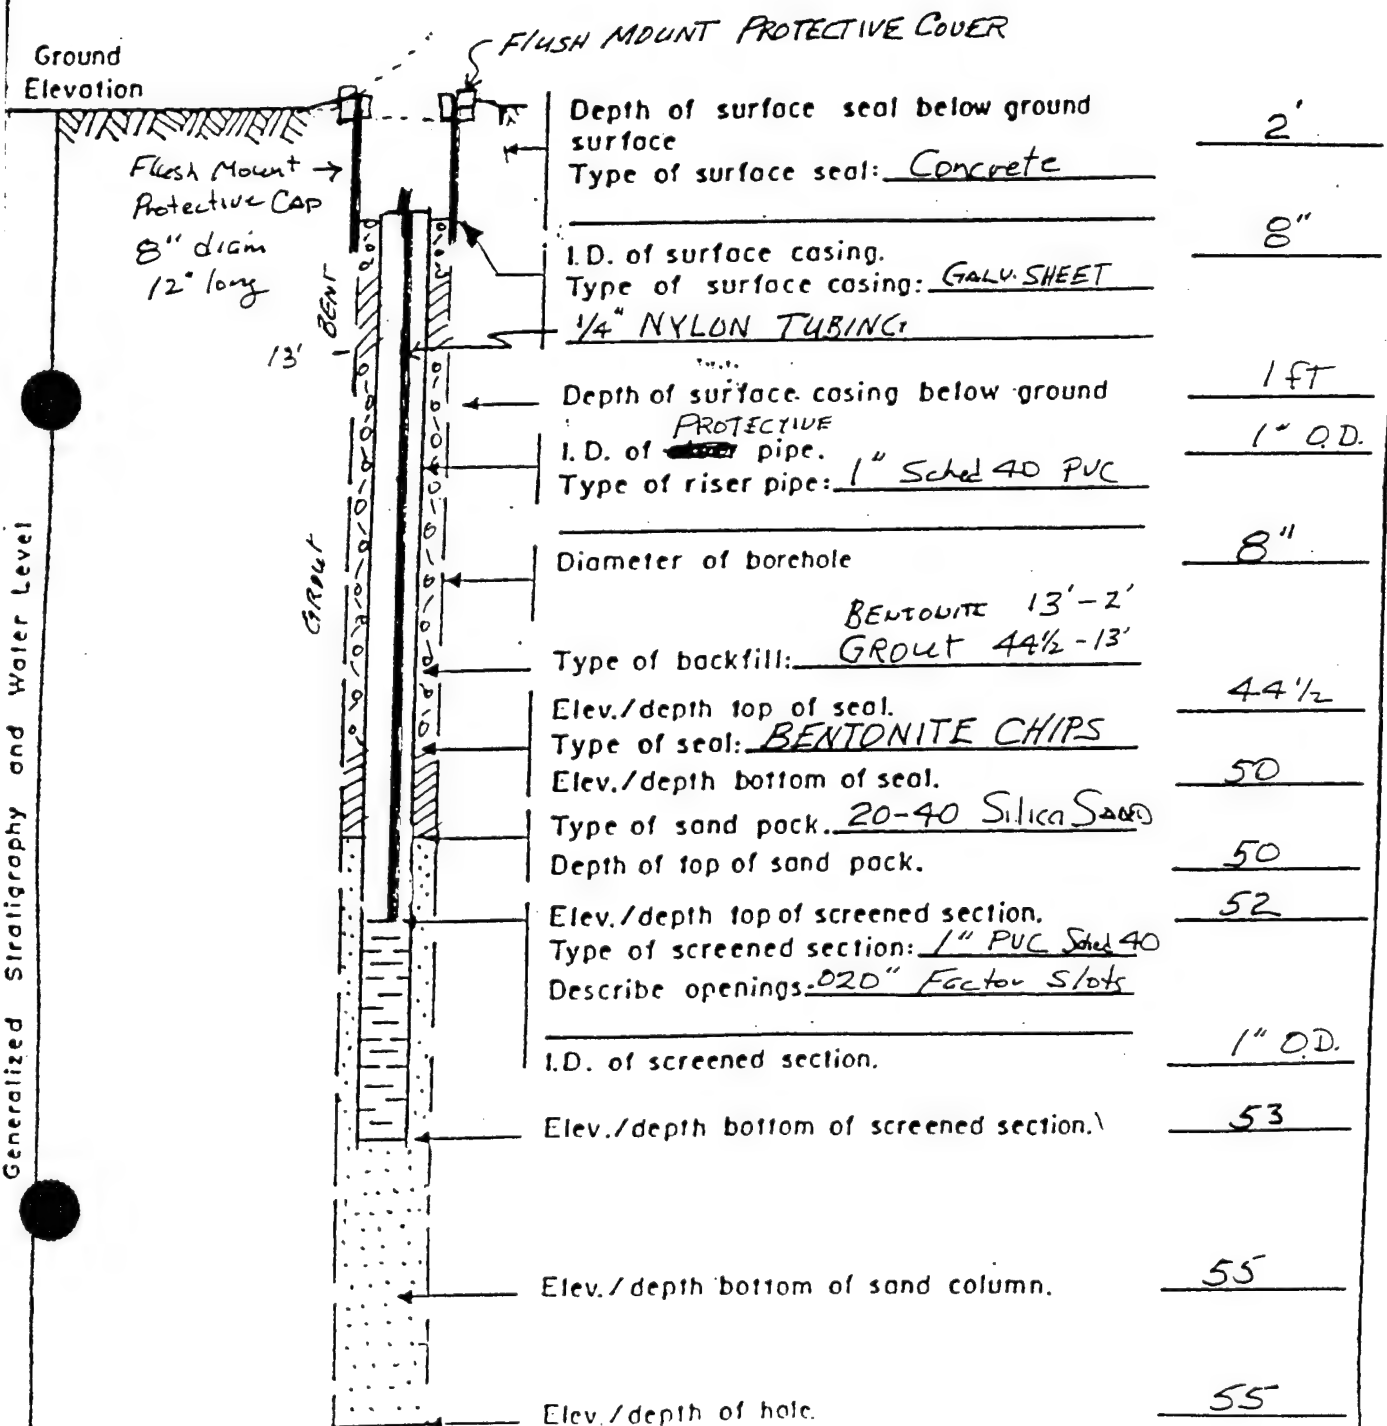 FLUSH MOUNT PROTECTIVE COVER
Ground
Elevation
Flush Mount
Protective CAP
8" diam
12" long
BENT
13'
GROUT
Generalized Stratigraphy and Water Level
Depth of surface seal below ground
surface
2'
Type of surface seal: Concrete
I.D. of surface casing.
8"
Type of surface casing: GALV. SHEET
1/4" NYLON TUBING
Depth of surface casing below ground
1 FT
PROTECTIVE
I.D. of pipe.
1" O.D.
Type of riser pipe: 1" Sched 40 PVC
Diameter of borehole
8"
BENTONITE 13'-2'
Type of backfill: GROUT 44½-13'
Elev./depth top of seal.
44½
Type of seal: BENTONITE CHIPS
Elev./depth bottom of seal.
50
Type of sand pack. 20-40 Silica SAND
Depth of top of sand pack.
50
Elev./depth top of screened section.
52
Type of screened section: 1" PVC Sched 40
Describe openings .020" Factor Slots
I.D. of screened section.
1" O.D.
Elev./depth bottom of screened section.
53
Elev./depth bottom of sand column.
55
Elev./depth of hole.
55